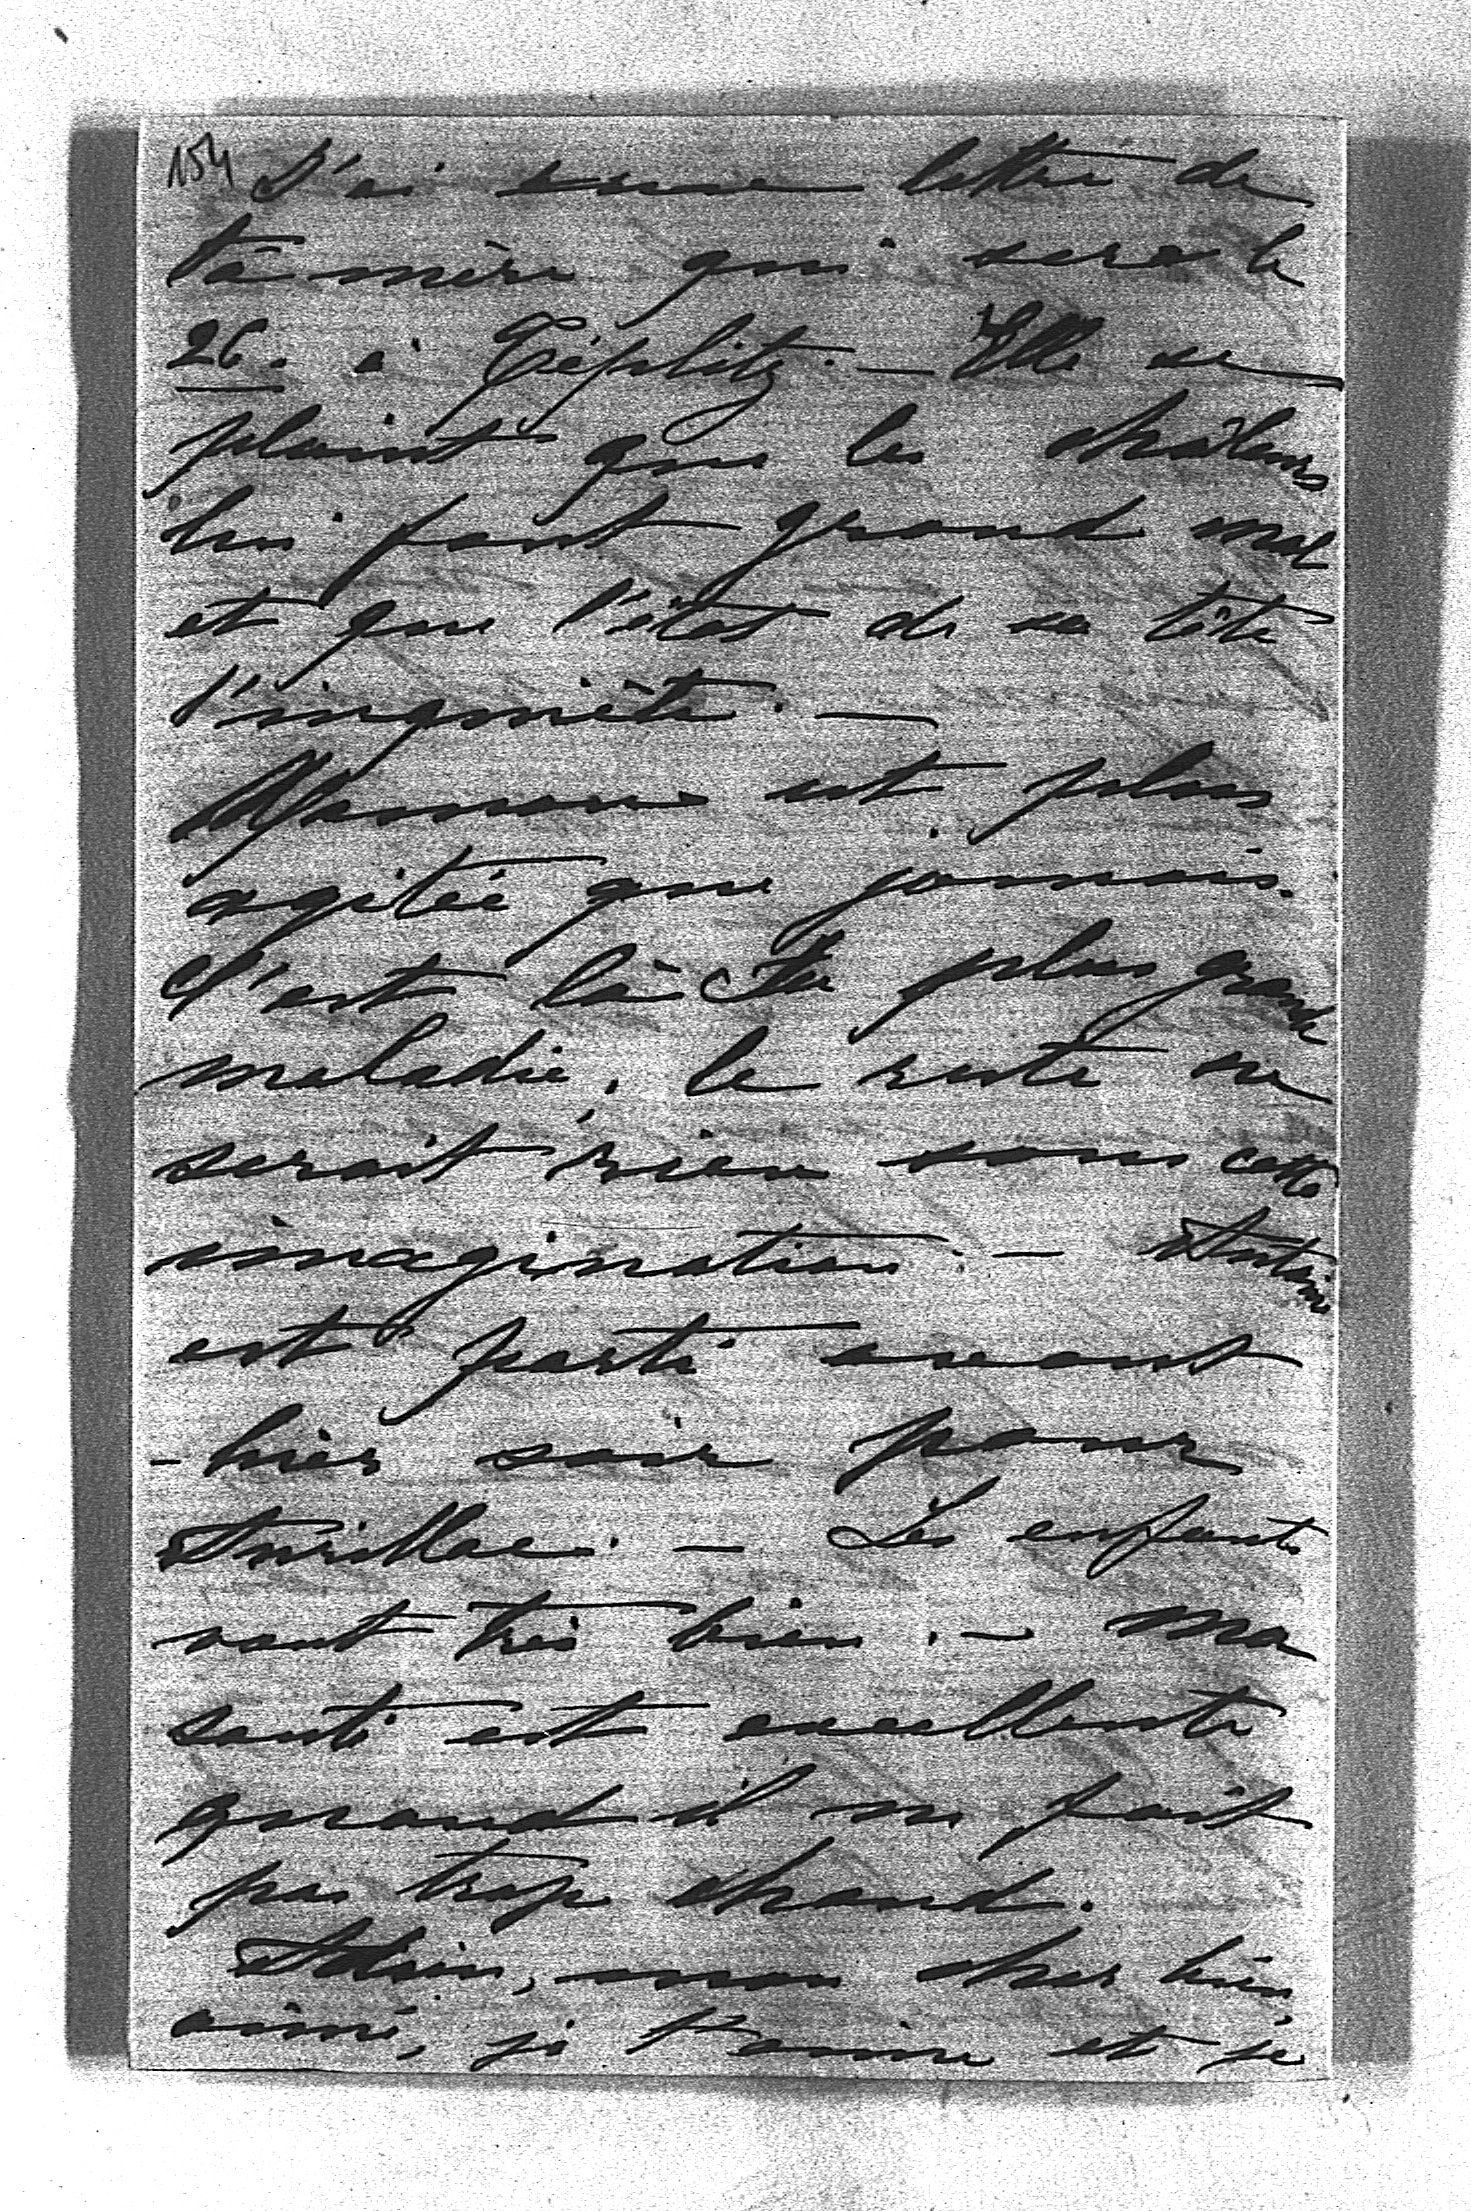 154 J'ai une lettre de
ta mère qui sera le
26. à Téplitz. — Elle se
plaint que les chaleurs
lui font grand mal
et que l'état de sa tête
l'inquiète. —
Maman est plus
agitée que jamais.
C'est là sa plus grande
maladie, le reste ne
serait rien sans cette
imagination. — Antoine
est parti avant
-hier soir pour
Aurillac. — Les enfants
vont très bien. — Ma
santé est excellente
quand il ne fait
pas trop chaud.
Adieu, mon cher bien
aimé, je t'aime et je